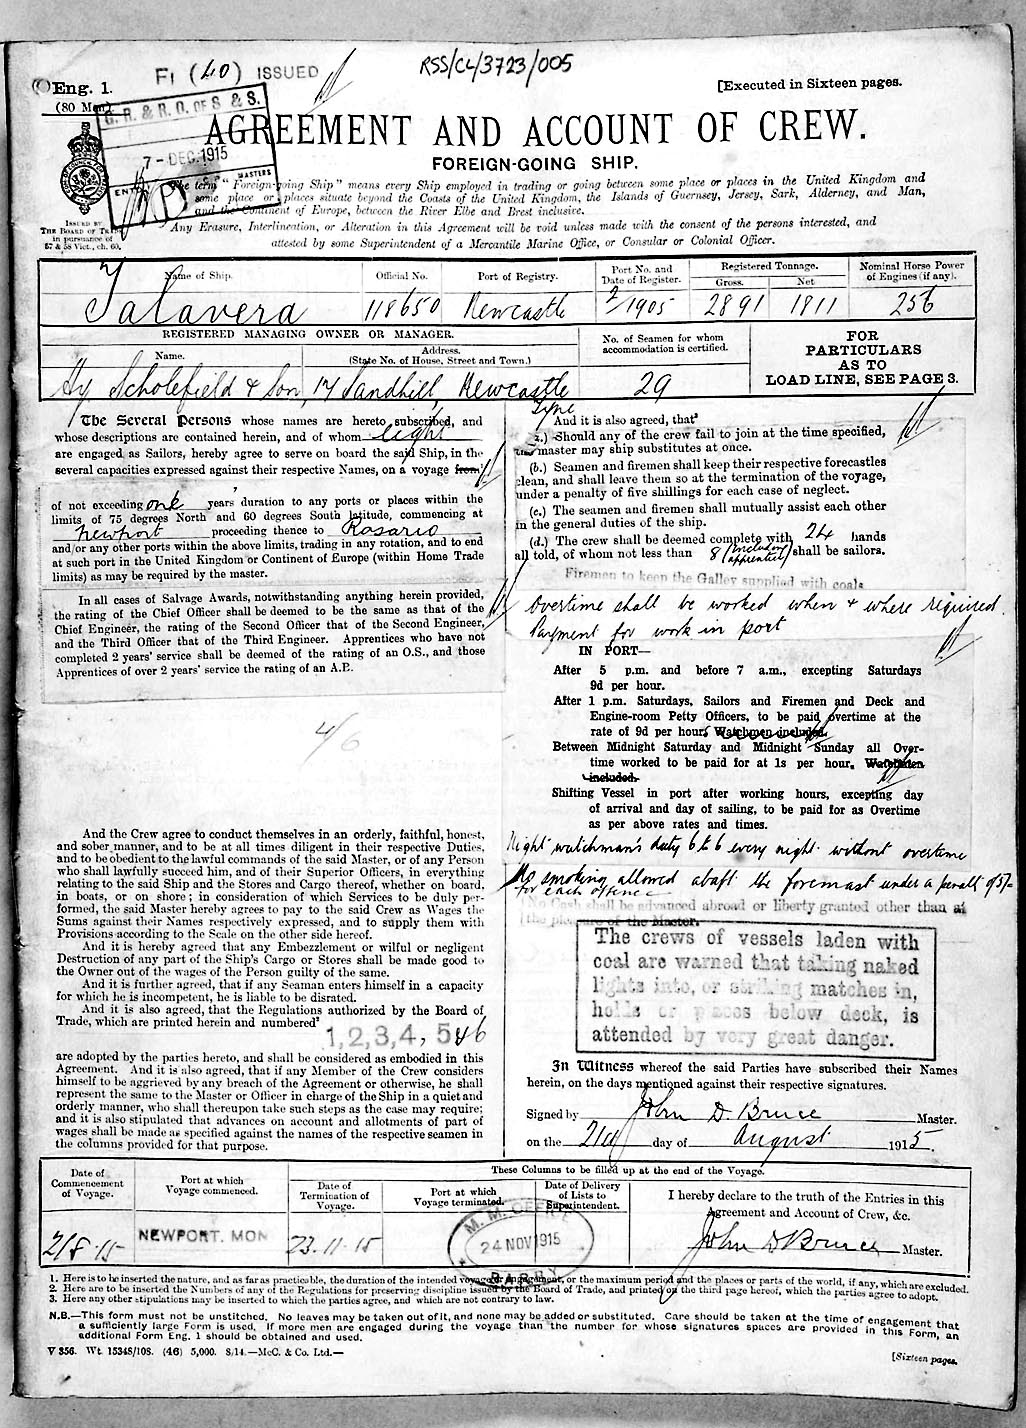 RSS/CL/3723/005
FI (40) ISSUED
Eng. 1.
(80 Men).
[Executed in Sixteen pages.
G. R. & R. O. OF S & S.
7 - DEC. 1915
MASTERS
AGREEMENT AND ACCOUNT OF CREW.
FOREIGN-GOING SHIP.
The term "Foreign-going Ship" means every Ship employed in trading or going between some place or places in the United Kingdom and
some place or places situate beyond the Coasts of the United Kingdom, the Islands of Guernsey, Jersey, Sark, Alderney, and Man,
and the Continent of Europe, between the River Elbe and Brest inclusive.
Any Erasure, Interlineation, or Alteration in this Agreement will be void unless made with the consent of the persons interested, and
attested by some Superintendent of a Mercantile Marine Office, or Consular or Colonial Officer.
ISSUED BY
THE BOARD OF TRADE
in pursuance of
57 & 58 Vict., ch. 60.
Name of Ship.
Official No.
Port of Registry.
Port No. and
Date of Register.
Registered Tonnage.
Gross.
Net
Nominal Horse Power
of Engines (if any).
Talavera
118650
Newcastle
2/1905
2891
1811
256
REGISTERED MANAGING OWNER OR MANAGER.
Name.
Address.
(State No. of House, Street and Town.)
No. of Seamen for whom
accommodation is certified.
FOR
PARTICULARS
AS TO
LOAD LINE, SEE PAGE 3.
Hy Scholefield & Son, 17 Sandhill, Newcastle
Tyne
29
The Several Persons whose names are hereto subscribed, and
whose descriptions are contained herein, and of whom eight
are engaged as Sailors, hereby agree to serve on board the said Ship, in the
several capacities expressed against their respective Names, on a voyage from
of not exceeding one years' duration to any ports or places within the
limits of 75 degrees North and 60 degrees South latitude, commencing at
Newport proceeding thence to Rosario
and/or any other ports within the above limits, trading in any rotation, and to end
at such port in the United Kingdom or Continent of Europe (within Home Trade
limits) as may be required by the master.
In all cases of Salvage Awards, notwithstanding anything herein provided,
the rating of the Chief Officer shall be deemed to be the same as that of the
Chief Engineer, the rating of the Second Officer that of the Second Engineer,
and the Third Officer that of the Third Engineer. Apprentices who have not
completed 2 years' service shall be deemed of the rating of an O.S., and those
Apprentices of over 2 years' service the rating of an A.B.
4/6
And the Crew agree to conduct themselves in an orderly, faithful, honest,
and sober manner, and to be at all times diligent in their respective Duties,
and to be obedient to the lawful commands of the said Master, or of any Person
who shall lawfully succeed him, and of their Superior Officers, in everything
relating to the said Ship and the Stores and Cargo thereof, whether on board,
in boats, or on shore; in consideration of which Services to be duly per-
formed, the said Master hereby agrees to pay to the said Crew as Wages the
Sums against their Names respectively expressed, and to supply them with
Provisions according to the Scale on the other side hereof.
And it is hereby agreed that any Embezzlement or wilful or negligent
Destruction of any part of the Ship's Cargo or Stores shall be made good to
the Owner out of the wages of the Person guilty of the same.
And it is further agreed, that if any Seaman enters himself in a capacity
for which he is incompetent, he is liable to be disrated.
And it is also agreed, that the Regulations authorized by the Board of
Trade, which are printed herein and numbered² 1,2,3,4, 5 & 6
are adopted by the parties hereto, and shall be considered as embodied in this
Agreement. And it is also agreed, that if any Member of the Crew considers
himself to be aggrieved by any breach of the Agreement or otherwise, he shall
represent the same to the Master or Officer in charge of the Ship in a quiet and
orderly manner, who shall thereupon take such steps as the case may require;
and it is also stipulated that advances on account and allotments of part of
wages shall be made as specified against the names of the respective seamen in
the columns provided for that purpose.
And it is also agreed, that³
(a.) Should any of the crew fail to join at the time specified,
the master may ship substitutes at once.
(b.) Seamen and firemen shall keep their respective forecastles
clean, and shall leave them so at the termination of the voyage,
under a penalty of five shillings for each case of neglect.
(c.) The seamen and firemen shall mutually assist each other
in the general duties of the ship.
(d.) The crew shall be deemed complete with 24 hands
all told, of whom not less than 8 (including apprentices) shall be sailors.
Firemen to keep the Galley supplied with coals
Overtime shall be worked when & where required.
Payment for work in port
IN PORT—
After 5 p.m. and before 7 a.m., excepting Saturdays
9d per hour.
After 1 p.m. Saturdays, Sailors and Firemen and Deck and
Engine-room Petty Officers, to be paid overtime at the
rate of 9d per hour, Watchmen included.
Between Midnight Saturday and Midnight Sunday all Over-
time worked to be paid for at 1s per hour. Watchmen
included.
Shifting Vessel in port after working hours, excepting day
of arrival and day of sailing, to be paid for as Overtime
as per above rates and times.
Night watchman's duty 6 to 6 every night without overtime
No smoking allowed abaft the foremast under a penalty of 5/-
for each offence
(No Cash shall be advanced abroad or liberty granted other than at
the pleasure of the Master.
The crews of vessels laden with
coal are warned that taking naked
lights into, or striking matches in,
holds or places below deck, is
attended by very great danger.
In Witness whereof the said Parties have subscribed their Names
herein, on the days mentioned against their respective signatures.
Signed by John D Bruce Master.
on the 21st day of August 1915.
Date of
Commencement
of Voyage.
Port at which
Voyage commenced.
These Columns to be filled up at the end of the Voyage.
Date of
Termination of
Voyage.
Port at which
Voyage terminated.
Date of Delivery
of Lists to
Superintendent.
I hereby declare to the truth of the Entries in this
Agreement and Account of Crew, &c.
21/8.15
NEWPORT. MON
23.11.15
M. M. OFFICE
24 NOV 1915
BARRY
John D Bruce Master.
1. Here is to be inserted the nature, and as far as practicable, the duration of the intended voyage or engagement, or the maximum period and the places or parts of the world, if any, which are excluded.
2. Here are to be inserted the Numbers of any of the Regulations for preserving discipline issued by the Board of Trade, and printed on the third page hereof, which the parties agree to adopt.
3. Here any other stipulations may be inserted to which the parties agree, and which are not contrary to law.
N.B.—This form must not be unstitched. No leaves may be taken out of it, and none may be added or substituted. Care should be taken at the time of engagement that
a sufficiently large Form is used. If more men are engaged during the voyage than the number for whose signatures spaces are provided in this Form, an
additional Form Eng. 1 should be obtained and used.
V 356. Wt. 15348/108. (46) 5,000. 8/14.—McC. & Co. Ltd.—
[Sixteen pages.